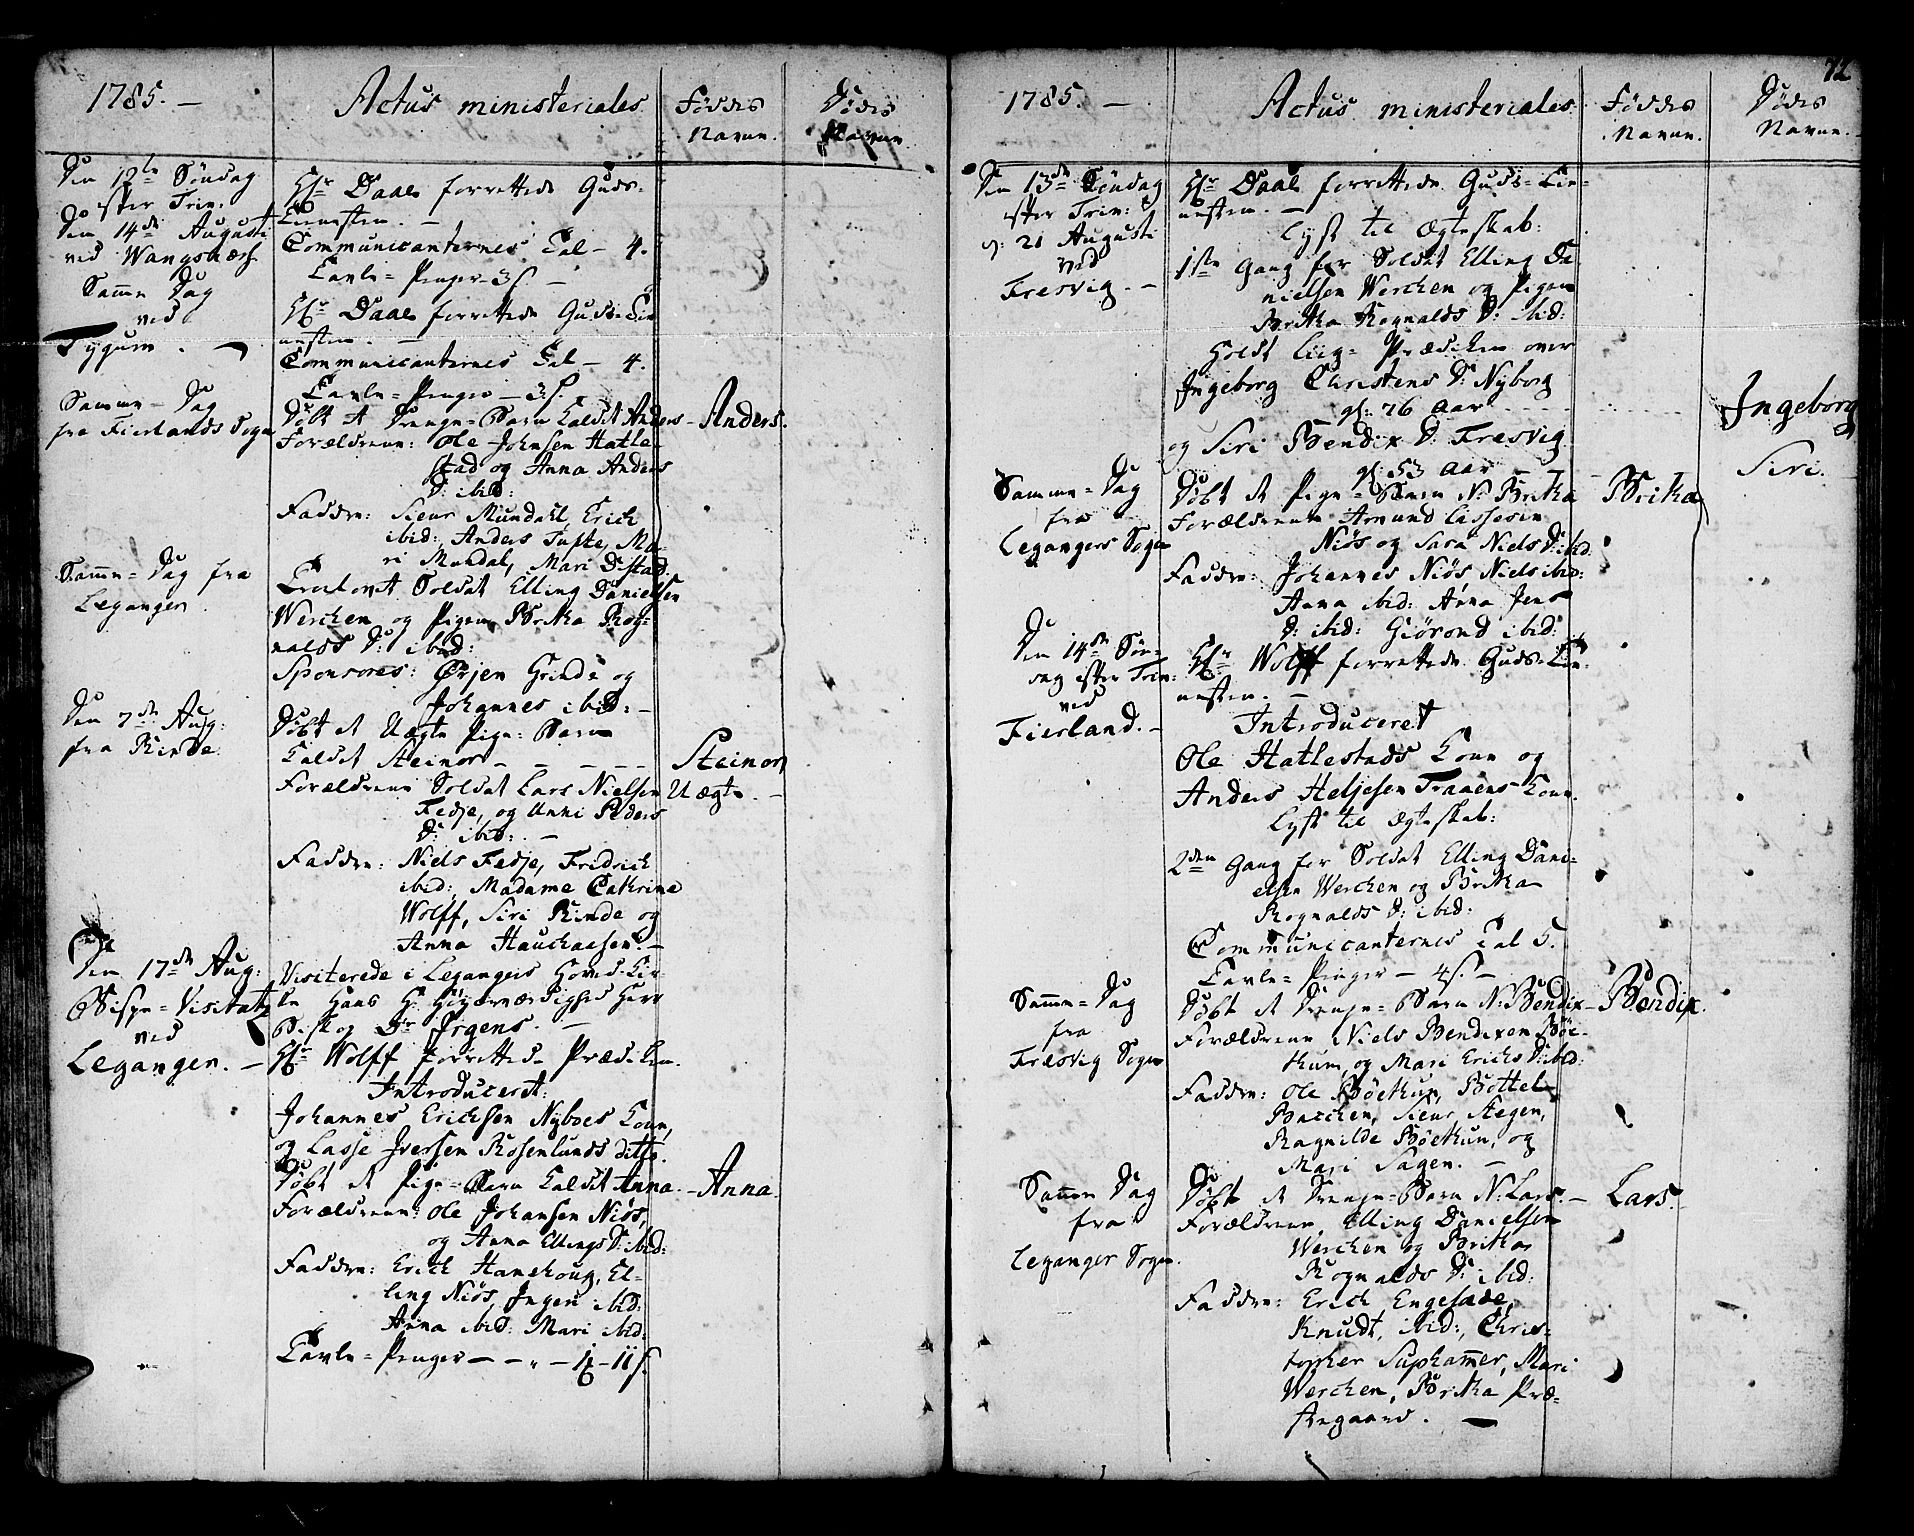 1785. —
Actus ministeriales
Føddes Navne.
Dødes Navne
Den 12te Søndag
efter Trin.
Den 14de Augusti
ved Wangsnæss
Hr Daae forrettede Guds=
Tienesten. —
Communicanternes Tal — 4.
Tavle=Penger — 3 s. —
Samme Dag
ved
Tygum. —
Hr Daae forrettede Guds=Tie
nesten. —
Communicanternes Tal — 4.
Tavle=Penger — 3 s.
Samme=Dag
fra Fierlands Sogn
Døbt et Drenge=Barn kaldet Anders — Anders.
Forældrene: Ole Johnsen Hatle=
stad og Anna Anders
D: ibid:
Faddre: Siur Mundahl, Erich
ibid:, Anders Tufte, Ma=
ri Mundal, Mari Distad.
Samme=Dag fra
Leganger
Trolovet Soldat Elling Danielsen
Werchen og Pigen Britha Rog=
nalds D: ibid:
Sponsores: Ørjen Grinde og
Johannes ibid: —
Den 7de Aug:
fra Rinde
Døbt et Uægte Pige=Barn
kaldet Steinor — — — — Steinor
Forældrene Soldat Lars Nielsen Uægte. —
Fedje, og Anni Peders
D: ibid: —
Faddre: Niels Fedje, Fridrich
ibid:, Madame Cathrine
Wolff, Siri Rinde og
Anna Hauchaasen. —
Den 17de Aug:
Bispe=Visitatz
ved
Leganger. —
Visiterede i Legangers Hoved-Kir=
ke Hans H: Høyærværdighed Herr
Biskop Dr Irgens. —
Hr Wolff forrettede Prædiken.
Introduceret:
Johannes Erichsen Nyboes Kone,
og Lasse Iversen Rosenlunds ditto.
Døbt et Pige=Barn kaldet Anna. — Anna.
Forældrene: Ole Johansen Niøs,
og Anna Ellings D: ibid:
Faddre: Erich Hanehoug, El=
ling Niøs, Ingen ibid:
Anna ibid: Mari ibid:
Tavle=Penger — — " — 1 — 11 s.
72
1785. —
Actus ministeriales
Føddes Navne.
Dødes Navne.
Den 13de Søndag
efter Trin:
d: 21 Augusti
ved
Fresvig. —
Hr Daae forrettede Guds=Tie=
nesten. —
Lyst til Ægteskab:
1ste Gang for Soldat Elling Da=
nielsen Werchen og Pigen
Britha Rognalds D: ibid:
Holdt Liig=Prædiken over
Ingeborg Christens D: Nyborg
gl: 76 Aar — Ingeborg
og Siri Bendix D: Fresvig
gl: 53 Aar — Siri.
Samme=Dag
fra
Legangers Sogn
Døbt et Pige=Barn N: Britha — Britha
Forældrene Amund Lassesen
Niøs og Sara Niels D: ibid:
Faddre: Johannes Niøs, Niels ibid:
Anna ibid: Anna Jens
D: ibid: Giørond ibid:
Den 14de Søn=
dag efter Trin:
ved
Fierland. —
Hr Wolff forrettede Guds=Tie=
nesten. —
Introduceret
Ole Hatlestads Kone og
Anders Heljesen Traaens Kone.
Lyst til Ægteskab:
2den Gang for Soldat Elling Dani=
elsen Werchen og Britha
Rognalds D: ibid:
Communicanternes Tal 5.
Tavle=Penger — 4 s. —
Samme=Dag
fra
Fresvig Sogn
Døbt et Drenge=Barn N: Bendix — Bendix.
Forældrene Niels Bendixen Bøt=
thun, og Mari Erichs D: ibid:
Faddre: Ole Bøtthun, Bottel
Batchen, Siur Stegen,
Ragnilde Bøtthun, og
Mari Sagen. —
Samme Dag
fra
Leganger Sogn.
Døbt et Drenge=Barn N: Lars. — Lars.
Forældrene, Elling Danielsen
Werchen og Britha
Rognalds D: ibid:
Faddre: Erich Engesæde,
Knudt, ibid:, Chris=
topher Suphammer, Mari
Werchen, Britha Præ=
stegaard. —